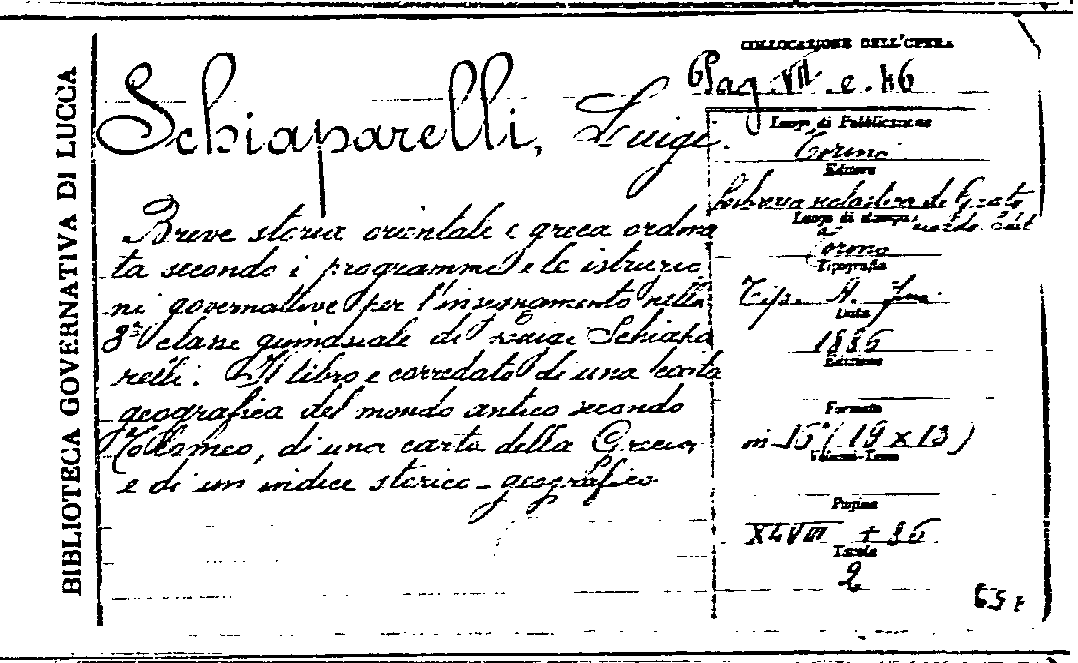 BIBLIOTECA GOVERNATIVA DI LUCCA
Schiaparelli, Luigi.
Breve storia orientale e greca ordina
ta secondo i programmi e le istruzio
ni governative per l'insegnamento nella
3ª classe ginnasiale di Luigi Schiapa
relli. Il libro e corredato di una carta
geografica del mondo antico secondo
Tolomeo, di una carta della Grecia,
e di un indice storico-geografico
COLLOCAZIONE DELL'OPERA
Pag. VII. e. 46
Luogo di Pubblicazione
Torino
Editore
di Grato
Luogo di stampa
Torino
Tipografia
Tip. A.
Data
1886
Edizione
Formato
in 16° (19 x 13)
Volumi-Tomo
Pagine
XLVIII + 86
Tavole
2